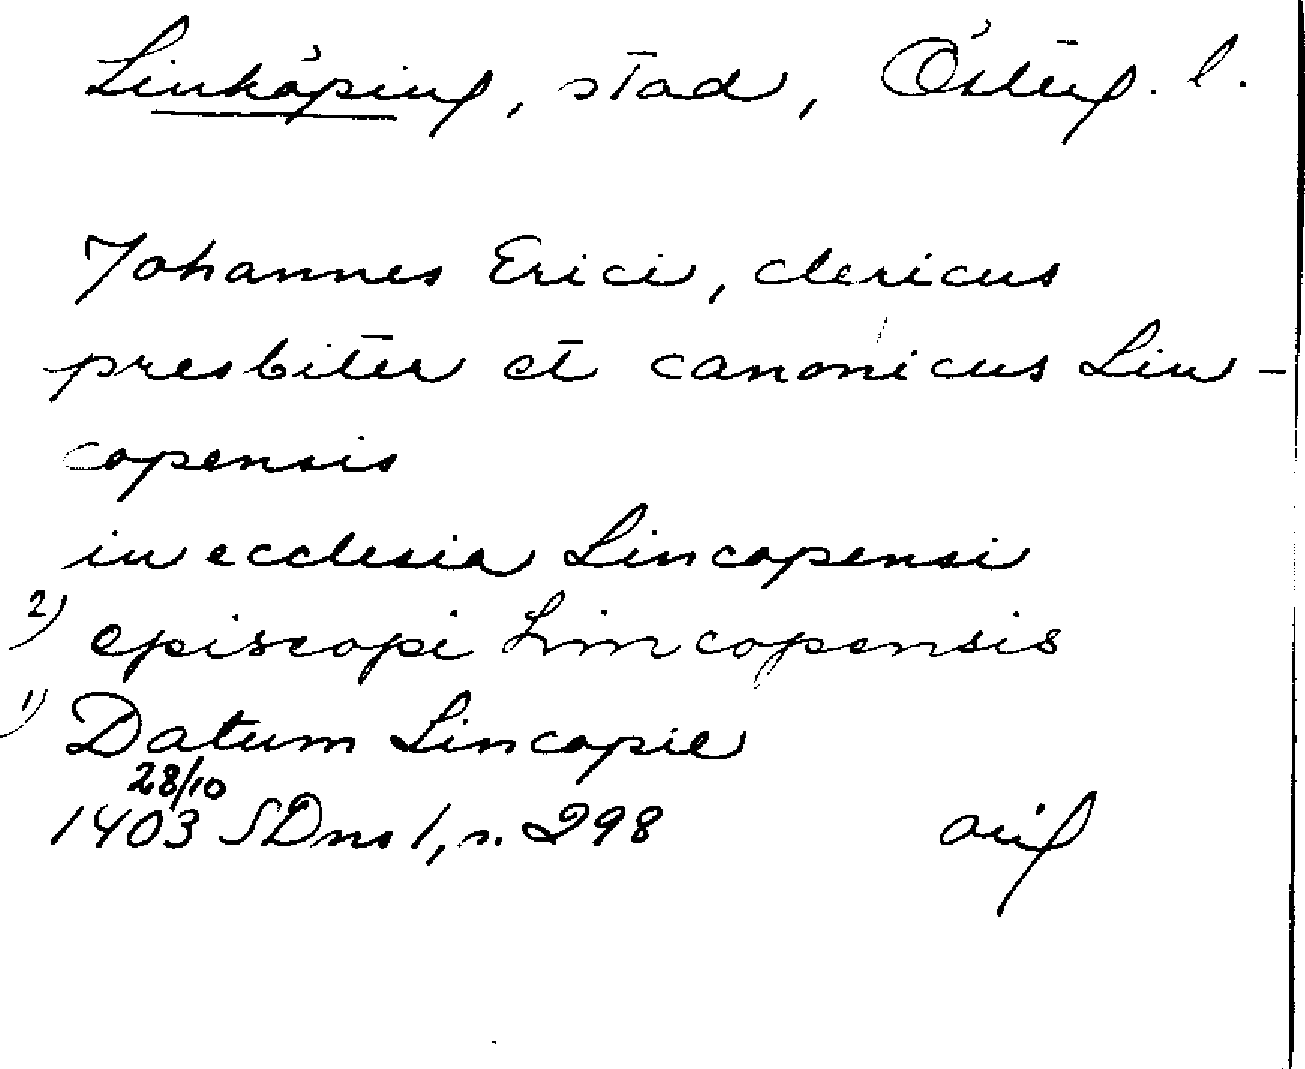 Linköping, stad, Österg. l.
Johannes Erici, clericus
presbiter et canonicus Lin-
copensis
in ecclesia Lincopensi
2) episcopi Lincopensis
1) Datum Lincopie
28/10
1403 SDns 1, s. 298 orig